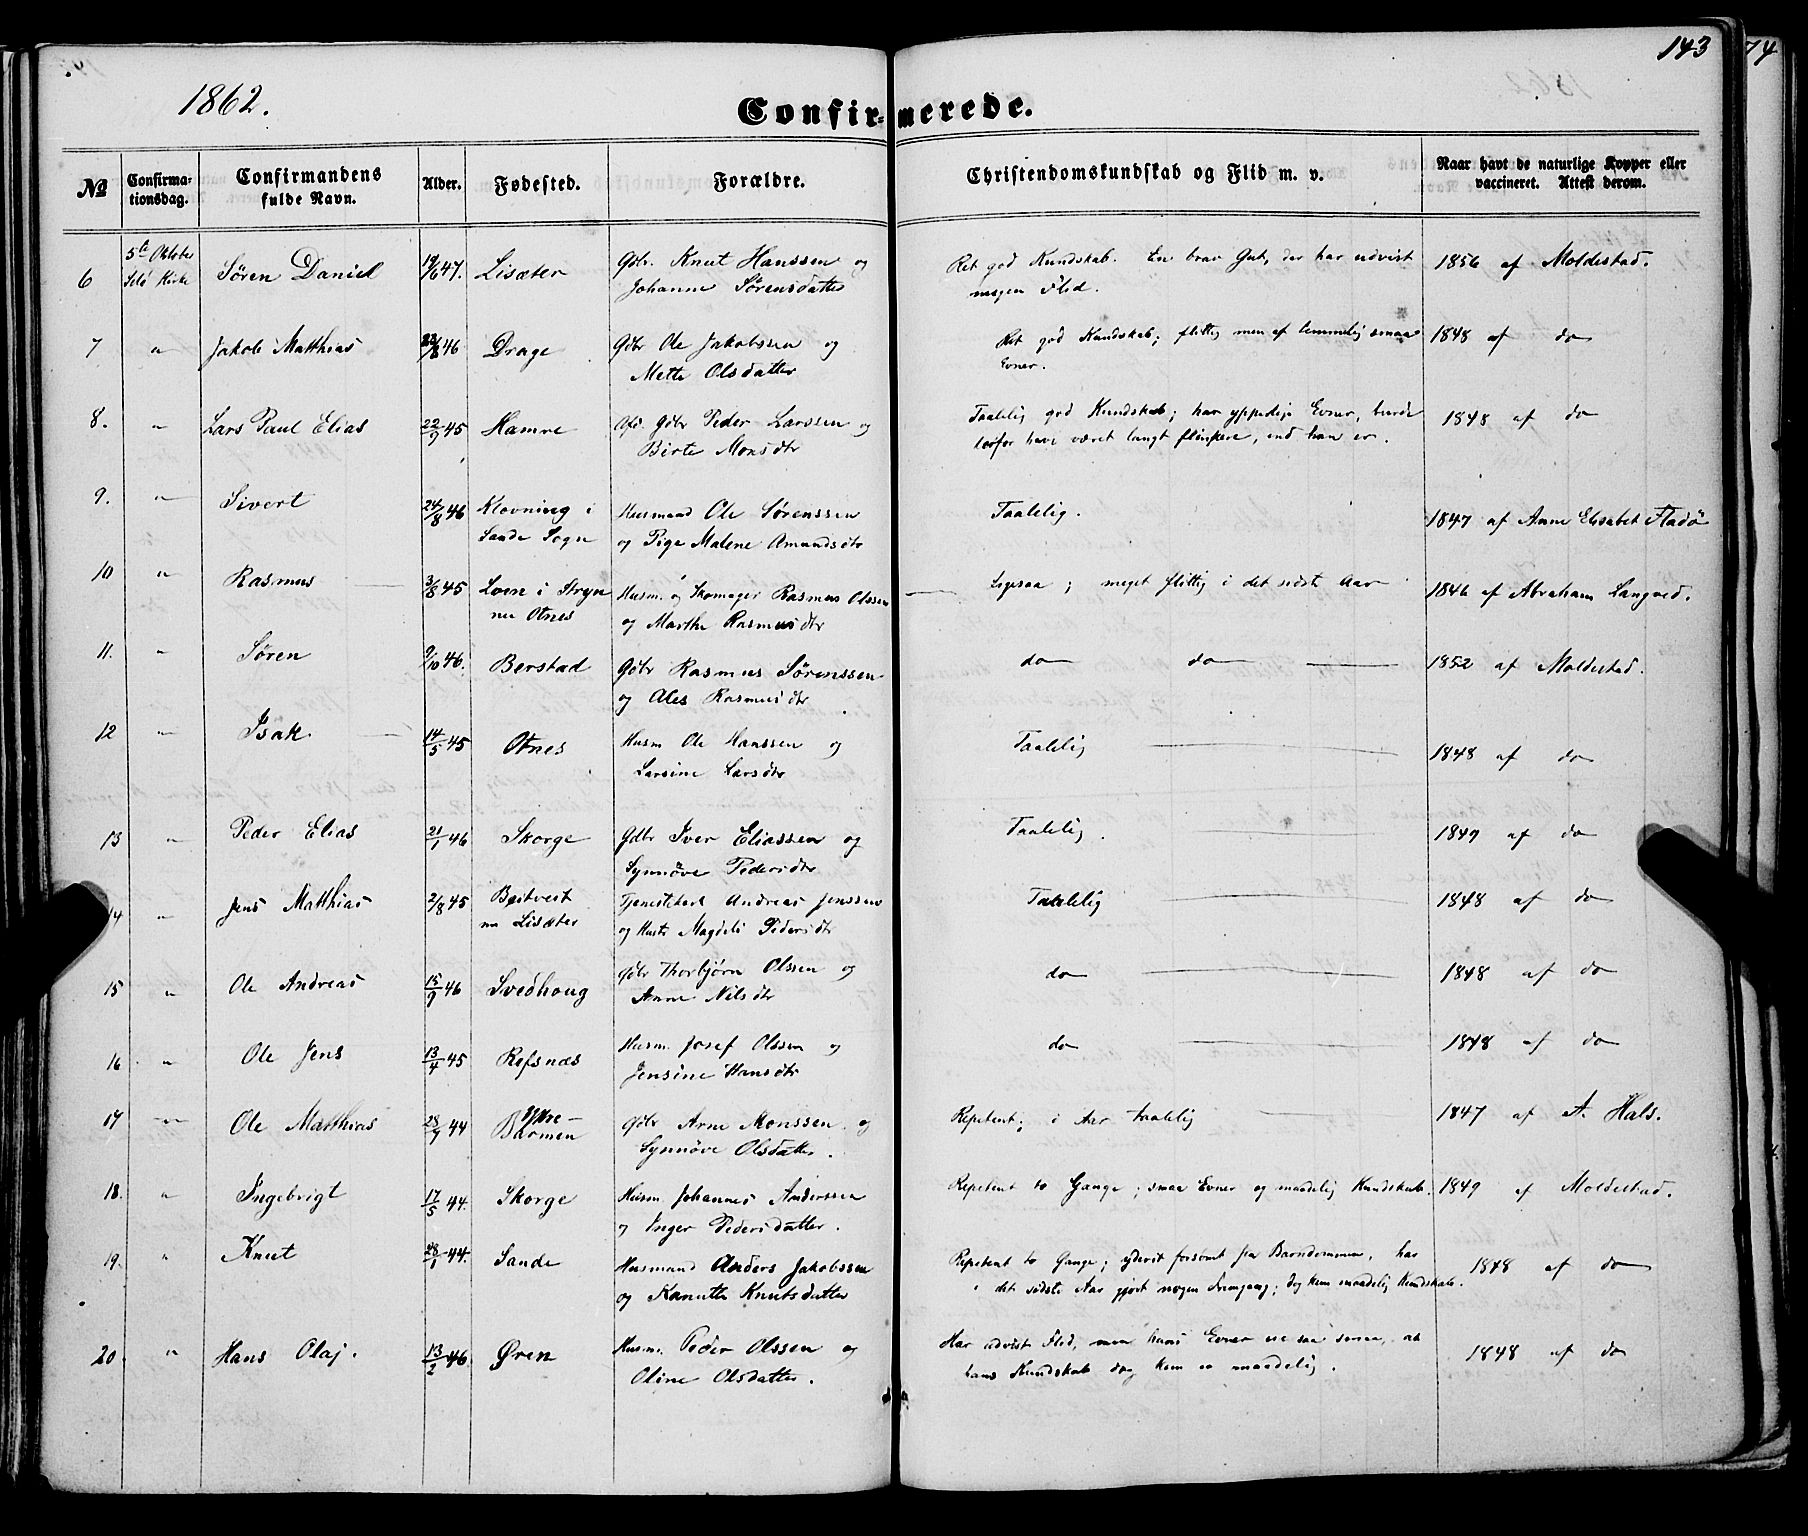 143
74
1862.
Confir- merede.
№ Confirma-tionsdag. Confirmandens fulde Navn. Alder. Fødested. Forældre. Christendomskundskab og Flid m. v. Naar havt de naturlige Kopper eller vaccineret. Attest derom.
6 5te Oktober Selø Kirke Søren Daniel 19/6 47. Lisæter Gbr. Knut Hanssen og Ret god Kundskab. En brav Gut, der har udvist 1856 af Moldestad.
Johanne Sørensdatter megen Flid.
7 " Jakob Matthias 22/8 46 Drage Gbr Ole Jakobssen og Ret god Kundskab; flittig men af temmelig smaa 1848 af do
Mette Olsdatter Evner.
8. " Lars Paul Elias 22/9 45 Hamre Afd. Gbr Peder Larssen og Taalelig god Kundskab; har ypperlige Evner, burde 1848 af do
Birte Monsdtr derfor have været langt flinkere, end han er.
9. " Sivert 24/8 46 Klovning i Husmand Ole Sørenssen Taalelig. 1847 af Anne Elisabet Fladø
Sande Sogn og Pige Malene Amundsdtr
10 " Rasmus 3/8 45 Loen i Stryn Husm. og Skomager Rasmus Olssen Ligesaa; meget flittig i det sidste Aar 1846 af Abraham Langved.
nu Otnes og Marthe Rasmusdtr
11. " Søren 9/10 46. Berstad Gbr Rasmus Sørenssen do do 1852 af Moldestad.
og Ales Rasmusdtr
12 " Isak 14/5 45 Otnes Husm Ole Hanssen og Taalelig 1848 af do
Larsine Larsdtr
13 " Peder Elias 21/1 46 Skorge Gdbr Iver Eliassen og Taalelig. 1849 af do
Synnøve Pedersdtr
14 " Jens Matthias 2/8 45 Beitveit Tjenestekarl Andreas Jenssen Taalelig 1848 af do
nu Lisæter og Hustr Magdeli Pedersdtr
15 " Ole Andreas 15/9 46 Svedhoug Gbr Thorbjørn Olssen og do 1848 af do
Anne Nilsdtr
16 " Ole Jens 13/4 45 Refsnæs Husm. Josef Olssen og do 1848 af do
Jensine Hansdtr
17 " Ole Matthias 23/9 44 Ytre- Barmen Gbr Arne Monssen og Repetent; i Aar taalelig 1847 af A. Hals.
Synnøve Olsdatter.
18. " Ingebrigt 17/5 44. Skorge Husm Johannes Anderssen Repetent to Gange; smaa Evner og maadelig Kundskab. 1849 af Moldestad.
og Inger Pedersdatter.
19. " Knut 28/1 44. Sande Husmand Anders Jakobssen Repetent to Gange; yderst forsømt fra Barndommen, har 1848 af do
og Kanutte Knutsdatter i det sidste Aar gjort nogen Fremgang; dog kun maadelig Kundskab.
20 " Hans Olaj. 13/2 46 Øren Husm. Peder Olssen og Har udvist Flid, men hans Evner ere saa smaa, at 1848 af do
Oline Olsdatter. hans Kundskab dog kun er maadelig.